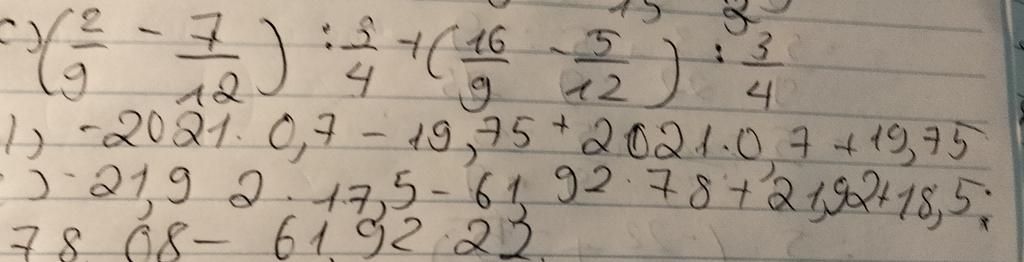 c) (2/9 - 7/12) : 3/4 + (16/9 - 5/12) : 3/4
) -2021 . 0,7 - 19,75 + 2021 . 0,7 + 19,75
) -21,92 . 17,5 - 61,92 . 78 + 21,92 + 18,5 :
78 08 - 61,92 . 22